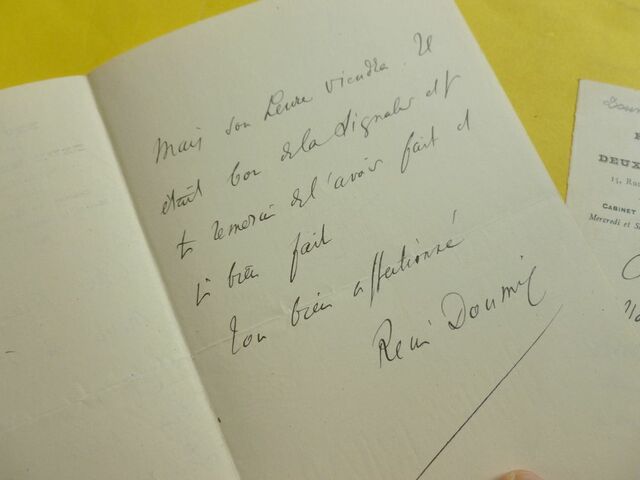 Mais son heure viendra. Il
était bon de la signaler et je
te remercie de l'avoir fait et
si bien fait
Ton bien affectionné
René Doumic
DEUX
15, Rue
CABINET
Mercredi et S